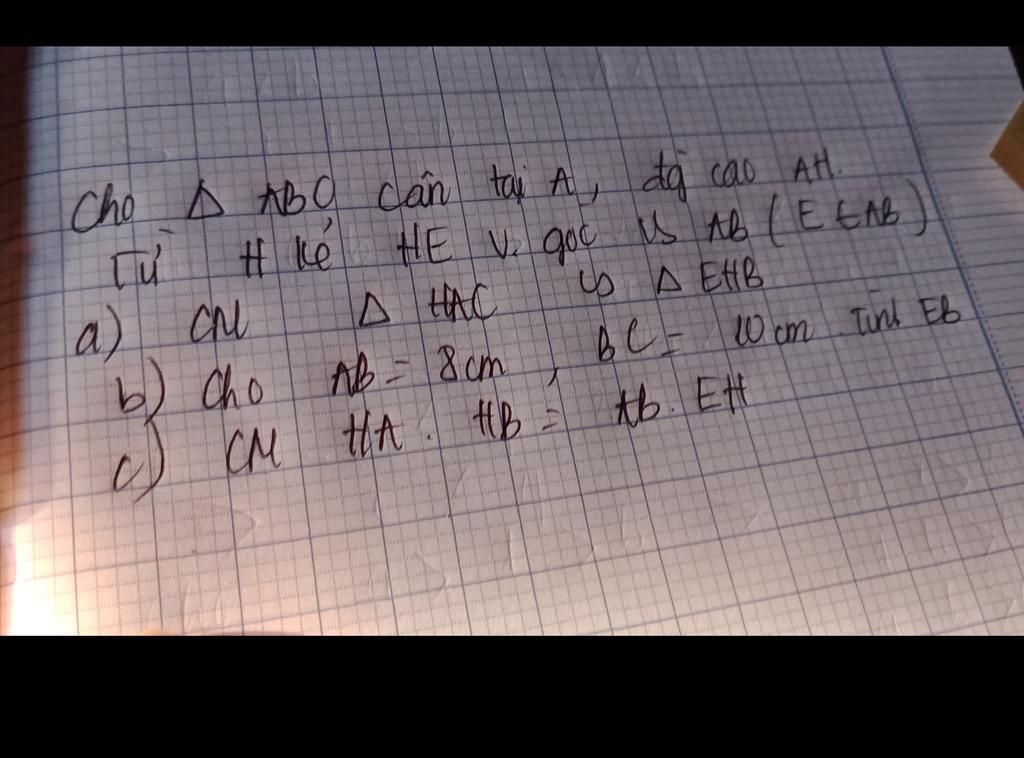 Cho Δ ABC cân tại A, đg cao AH.
Từ H kẻ HE v. góc vs AB ( E ∈ AB )
a) CM Δ HAC ∽ Δ EHB
b) Cho AB = 8cm , BC = 10 cm Tính EB
c) CM HA . HB = AB . EH